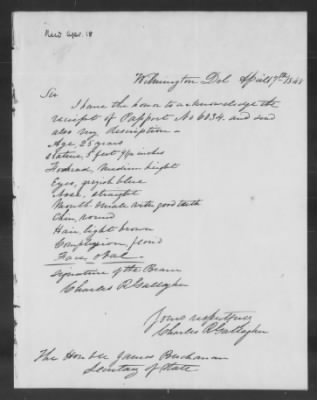 Recd Apr. 18
Wilmington Del April 17th 1848
Sir
I have the honor to acknowledge the
receipt of Passport No 6034 and send
also my description -
Age, 25 years
Stature, 5 feet 9½ inches
Forehead, Medium height
Eyes, greyish blue
Nose, straight
Mouth with good teeth
Chin, round
Hair, light brown
Complexion,
Face, oval.
Signature of the Bearer
Charles R Gallagher
Yours respectfully
Charles R Gallagher
The Honble James Buchanan
Secretary of State